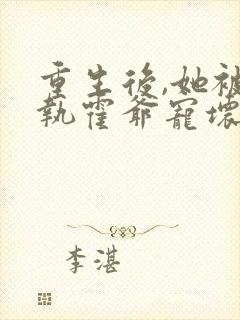 重生後,她被
執霍爺寵壞
李湛